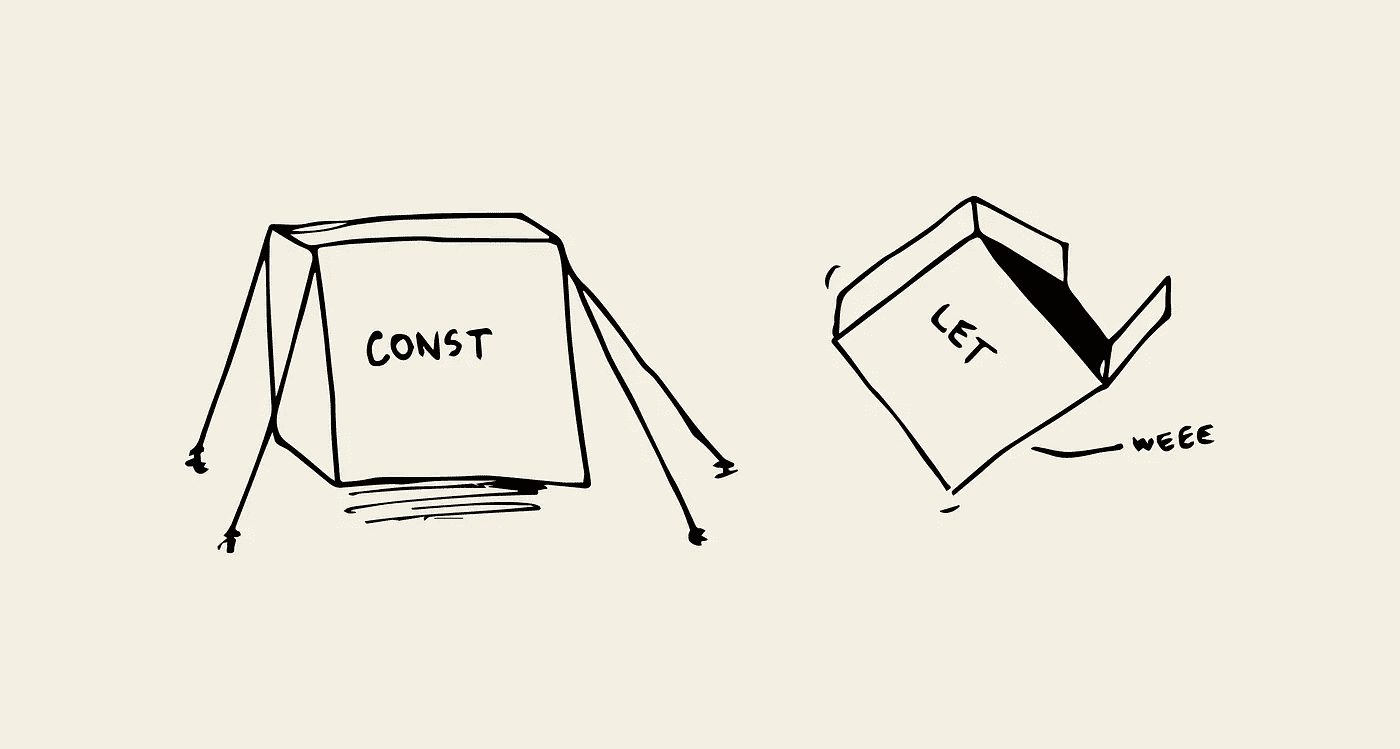 CONST
LET
WEEE